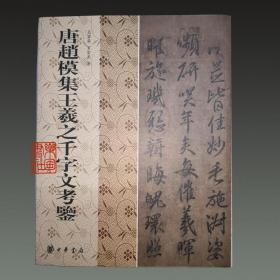 並皆佳妙毛施淑姿
嚬研咲年矢每催羲暉
曜旋璣懸斡晦魄環照
唐趙模集王羲之千字文考鑒
中華書局